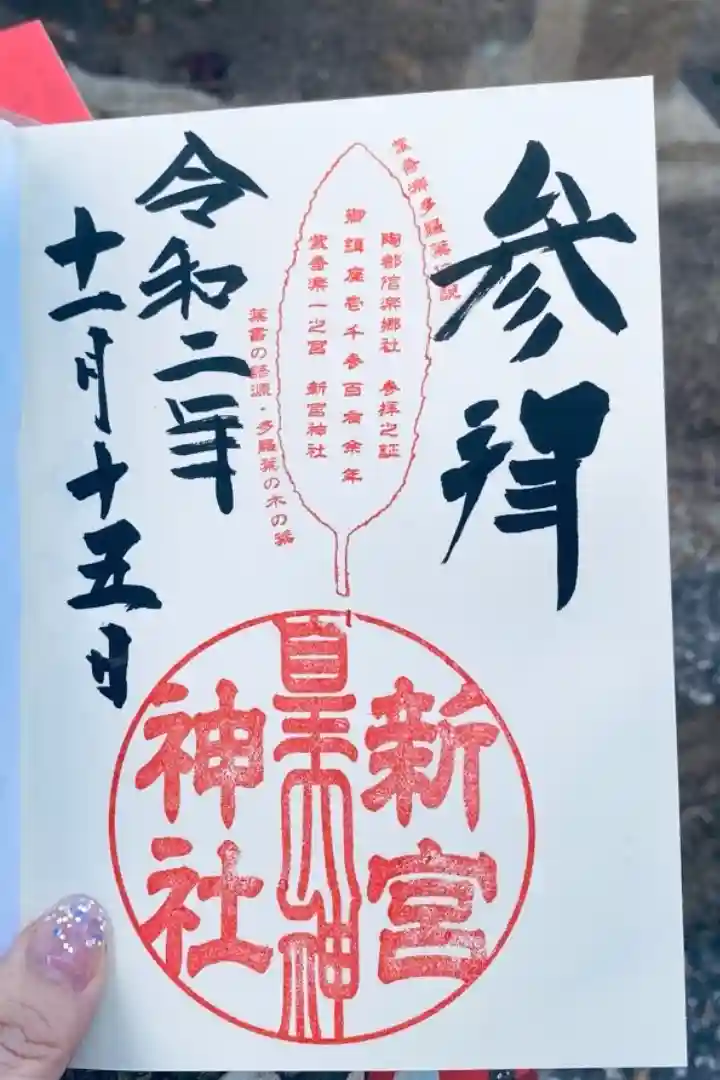 参拝
紫香楽多羅葉説
陶都信楽郷社 参拝之証
御鎮座壱千参百有余年
紫香楽一之宮 新宮神社
葉書の語源・多羅葉の木の葉
令和二年
十一月十五日
新宮
皇大神
神社